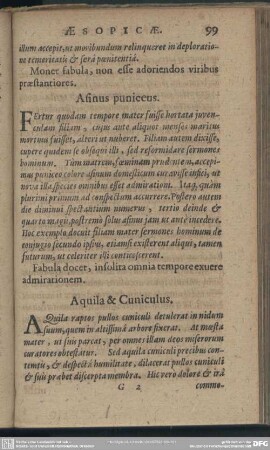 ÆSOPICÆ. 99
illum accepit, ut moribundum relinqueret in deploratione
temeritatis & seræ pœnitentiæ.
Monet fabula, non esse adoriendos viribus
præstantiores.
Asinus puniceus.
FErtur quidam tempore mater fuisse hortata juvenculam
suam, cujus ante aliquot menses maritus
mortuus fuisset, alteri ut nuberet. Filiam autem dicisse,
cupere quidem se obsequi illi, sed reformidare sermones
hominum. Tum matrem, fœminam prudentem, accepimus
colore asinum domesticum curavisse infici, ut
nova illa species omnibus esset admirationi. Itaq, quàm
plurimi primùm ad conspectum accurrere. Postero autem
die diminui spectantium numerus, tertio deinde &
quarto magis, postremò solus asinus jam ut antè incedere.
Hoc exemplo docuit filiam mater sermones hominum de
conjugio secundo ipsius, etiamsi existerent aliqui, tamen
futurum, ut celeriter isti conticescerent.
Fabula docet, insolita omnia tempore exuere
admirationem.
Aquila & Cuniculus.
AQuila raptos pullos cuniculi detulerat in nidum
suum, quem in altissimâ arbore fixerat. At mæsta
mater, ut sibi parcat, per omnes illam deos miserorum
curatores obtestatur. Sed aquila cuniculi precibus contemtis,
& despectâ humilitate, dilacerat pullos cuniculi
& suis præbet discerpta membra. Hic vero dolore & irâ
G 2 commo-